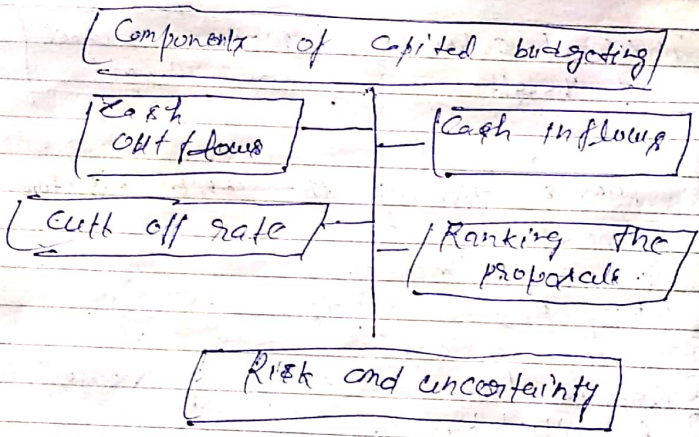 Components of Capital budgeting
Cash
out flows
Cash inflows
Cutt off rate
Ranking the
proposals.
Risk and uncertainty